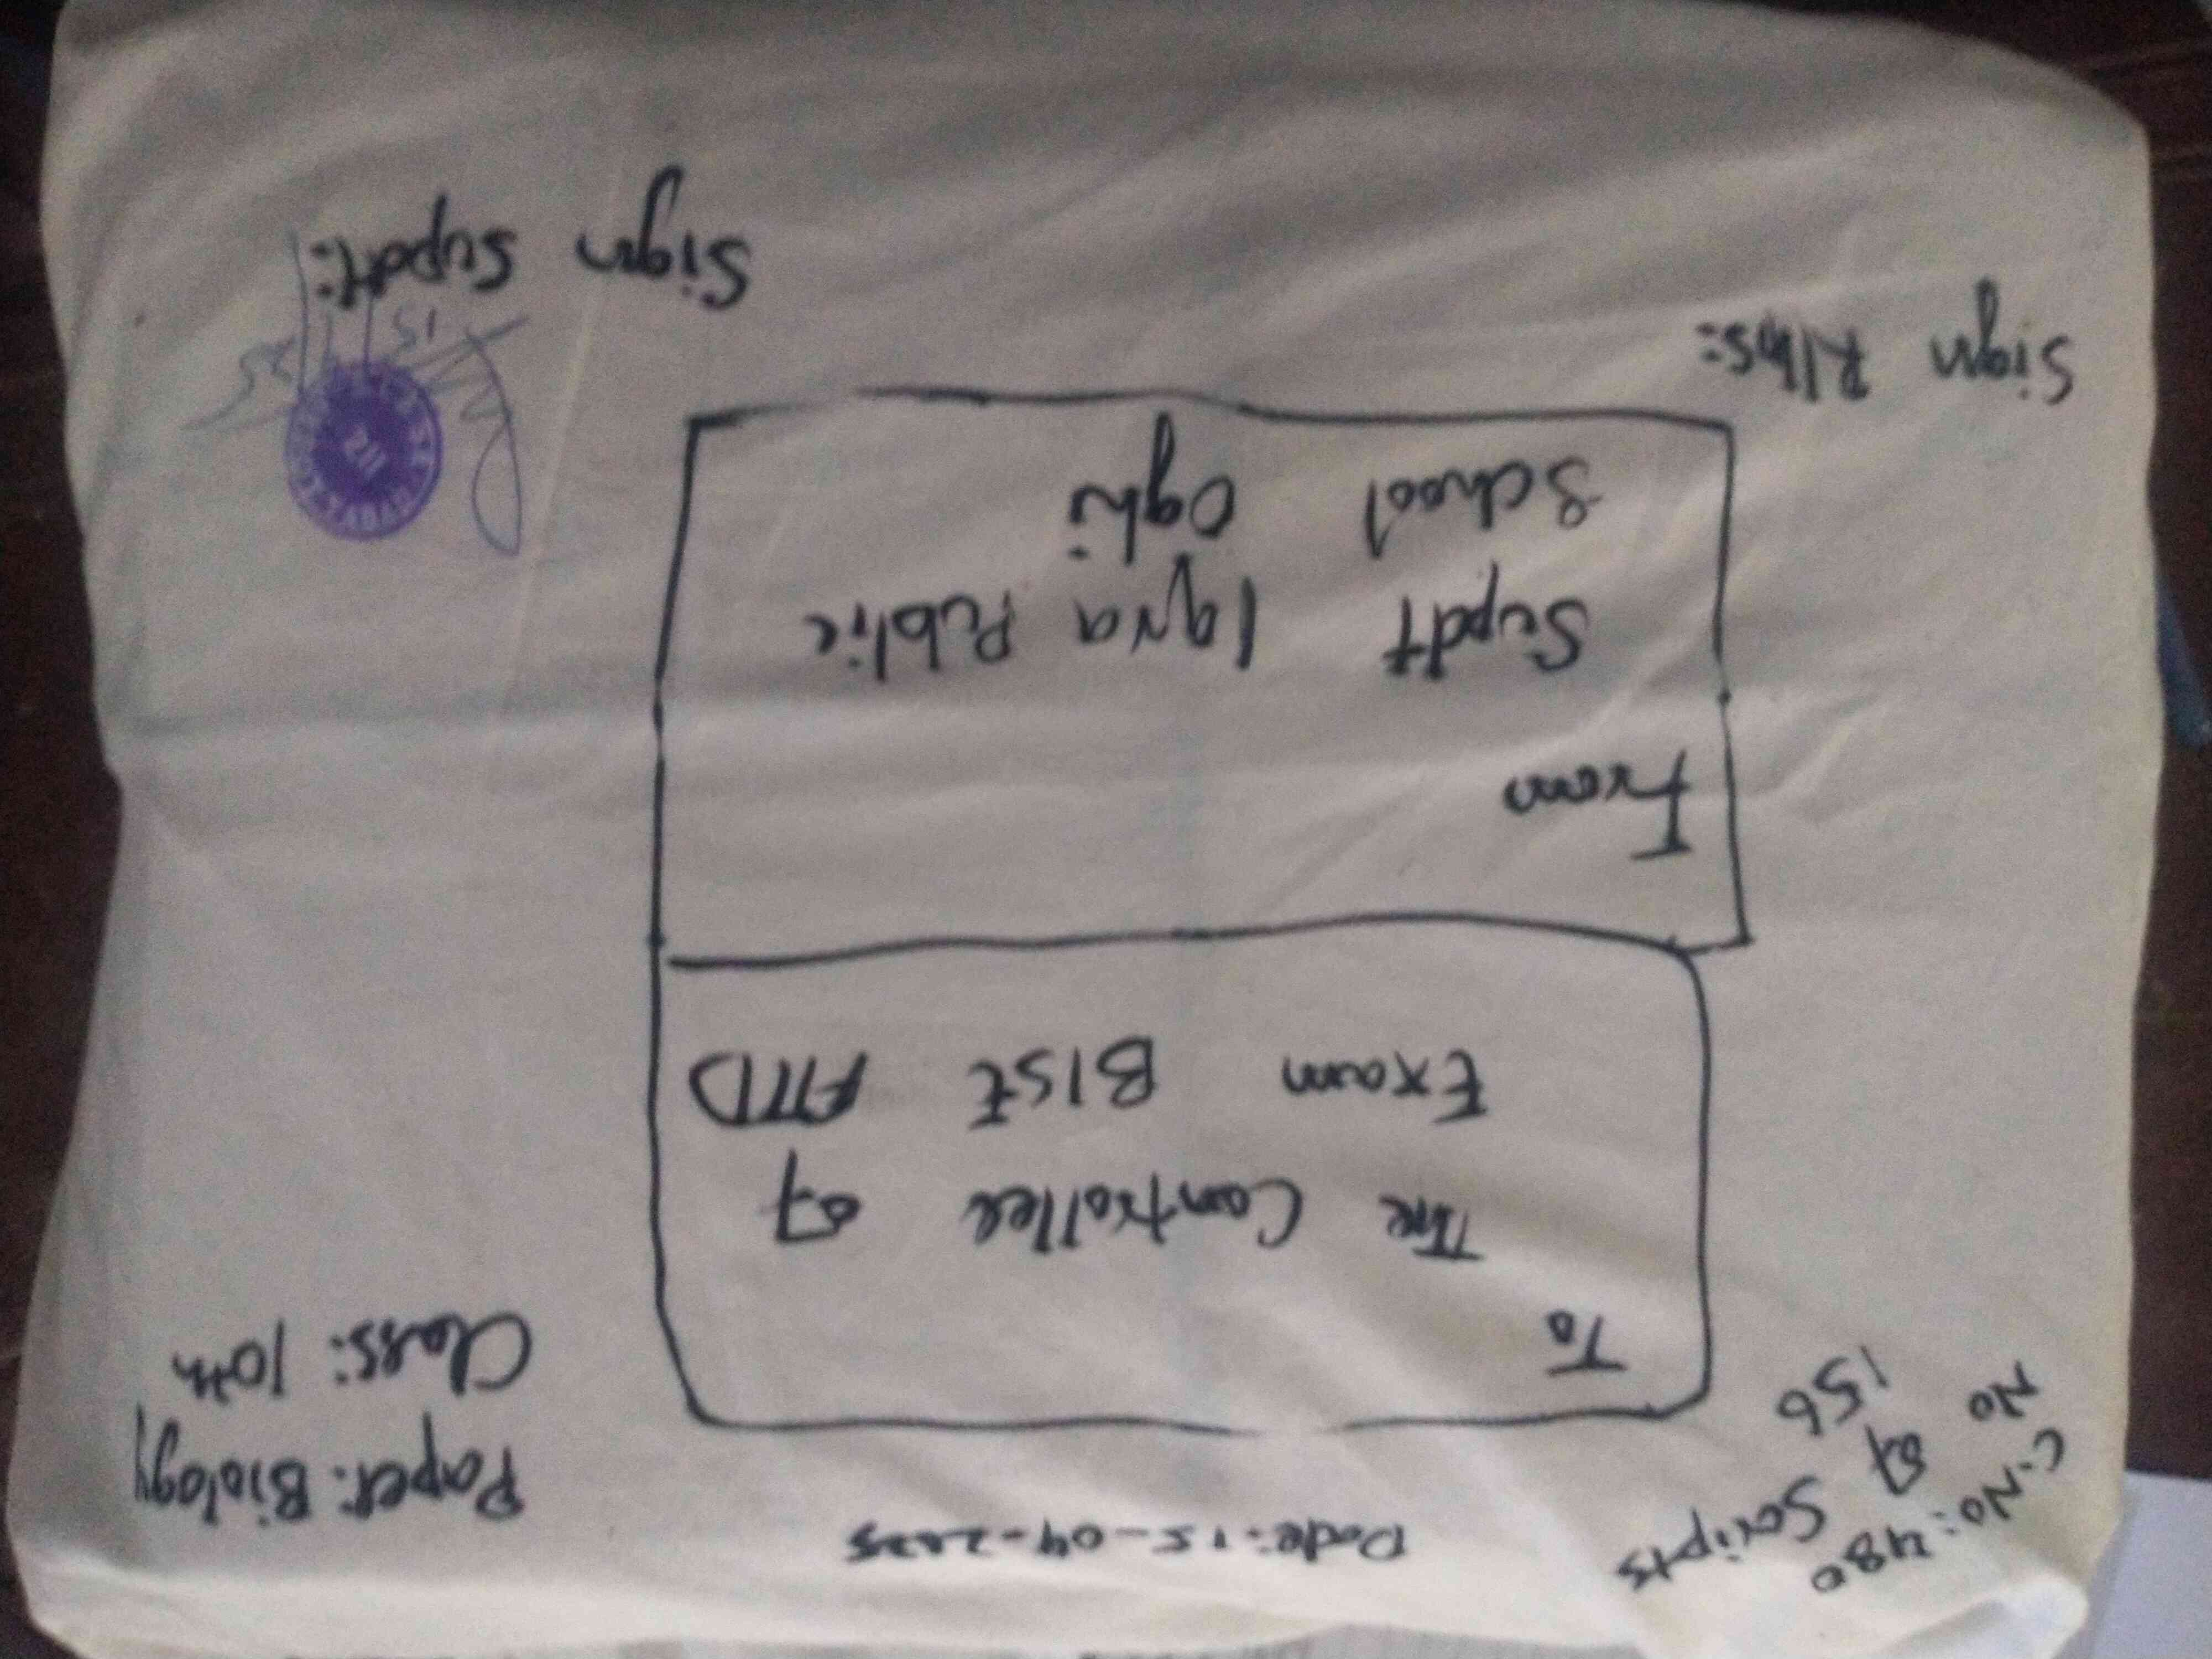 C.No: 480
No of Scripts
156
Date: 15-04-2025
Paper: Biology
Class: 10th
To
The Controller of
Exam BISE ATD
From
Supdt Iqra Public
School Oghi
Sign R/Ins:
Sign Supdt:
211